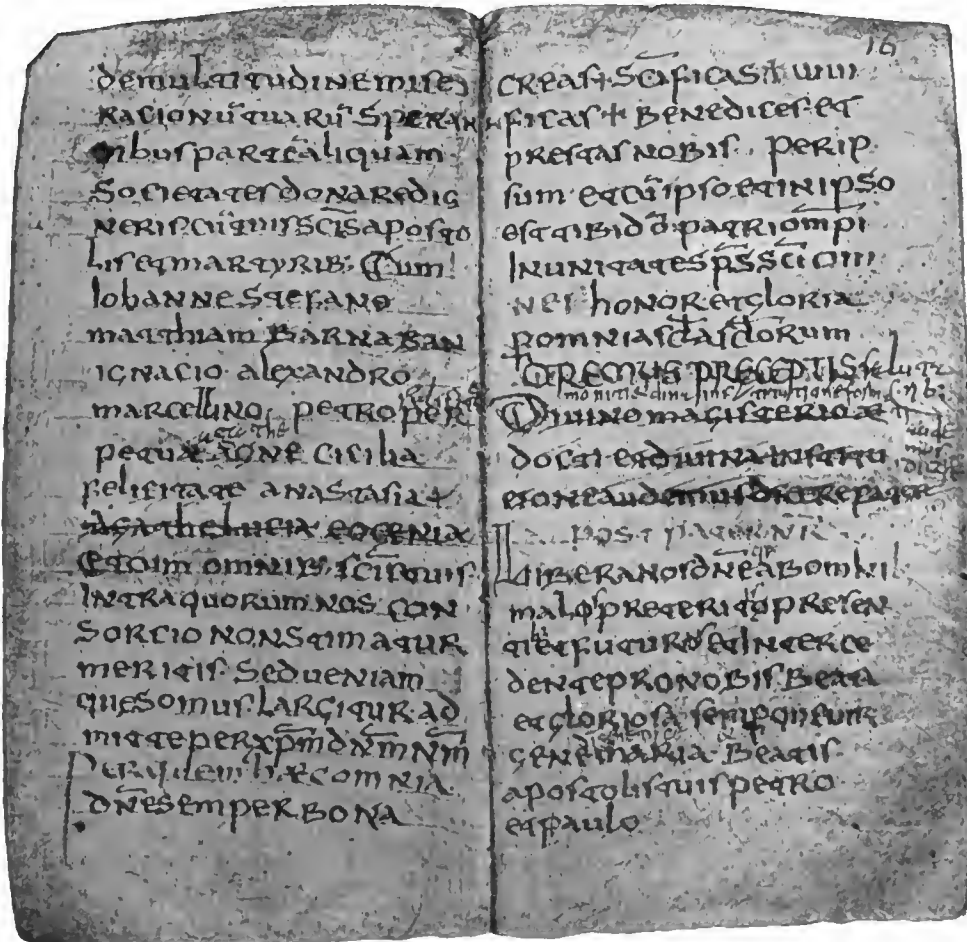 demultitudinemise
racionū tuarū speran
tibus partēaliquam
societates donaredig
neris cū tuis sc̄is aposto
lis etmartyrib: Cum
Iohanne Stefano
matthiam Barnaban
ignacio alexandro
marcellino petro per
petuae agne cicilia
felicitate anastasia &
agathe lucia eogenia
Etcum omnib: sc̄is tuis
Intraquorum nos con
sorcio nonstimatur
meritis sedueniam
quesomus largitur ad
mitte per xp̄m dn̄m nm̄
Per quem haec omnia
dn̄e semper bona
16
creas + Sc̄ificas + uiui
ficas + Benedices et
prestas nobis perip
sum et cū ipso etinipso
est tibi dō patri om̄pi
Inunitates sp̄s sc̄i om
nes honor et gloria
p omnia sc̄la sc̄lorum
OREMUS PRECEPTIS salutarib:
moniti & diui institutione form
Diuino magisterio
docti et diuina institu
tione audemus dicere pater
post pater nr̄
Libera nos dn̄e ab omni
malo preterito presen
ti et futuro et Interce
dente pro nobis Beata
et gloriosa semp uir
gene maria Beatis
apostolis tuis petro
et paulo